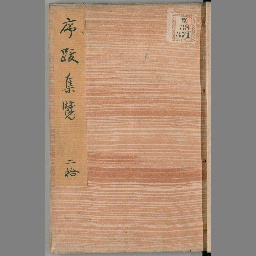 序跋集覽 二拾